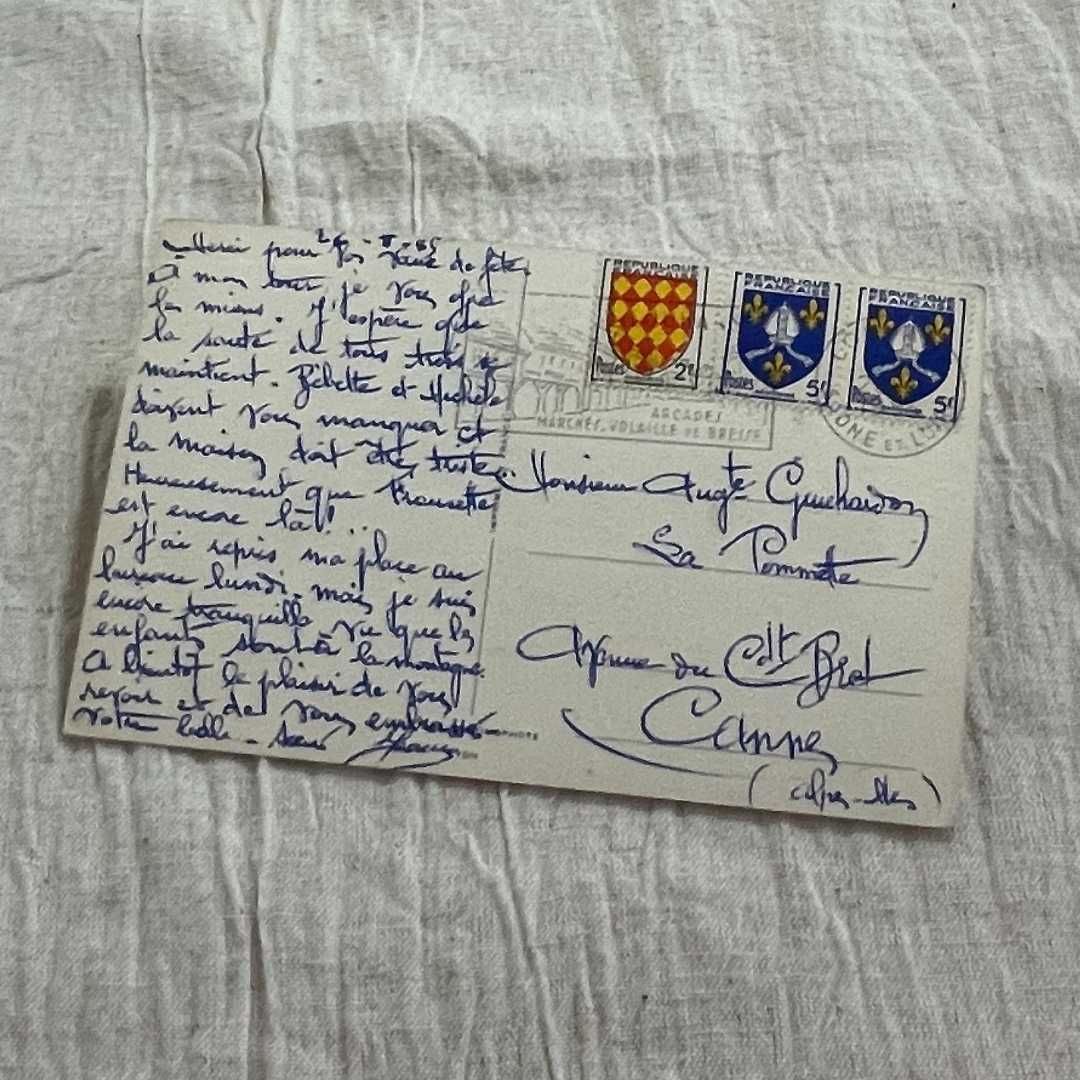 Merci pour vos vœux de fête.
À mon tour, je vous offre
les miens. J'espère que
la santé de tous trois se
maintient. Bébette et Michèle
doivent vous manquer et
la maison doit être triste.
Heureusement que
est encore là!
J'ai repris ma place au
bureau lundi, mais je suis
encore tranquille vu que les
enfants sont à la montagne.
A bientôt le plaisir de vous
revoir et de vous embrasser
Votre belle-sœur
REPUBLIQUE FRANÇAISE
Postes 2f
REPUBLIQUE FRANÇAISE
Postes 5f
REPUBLIQUE FRANÇAISE
Postes 5f
ARCADES
MARCHES, VOLAILLE DE BRESSE
Monsieur Augte Guichardon
La Pommette
Avenue du Cdt Bret
Cannes
(Alpes-Mes)